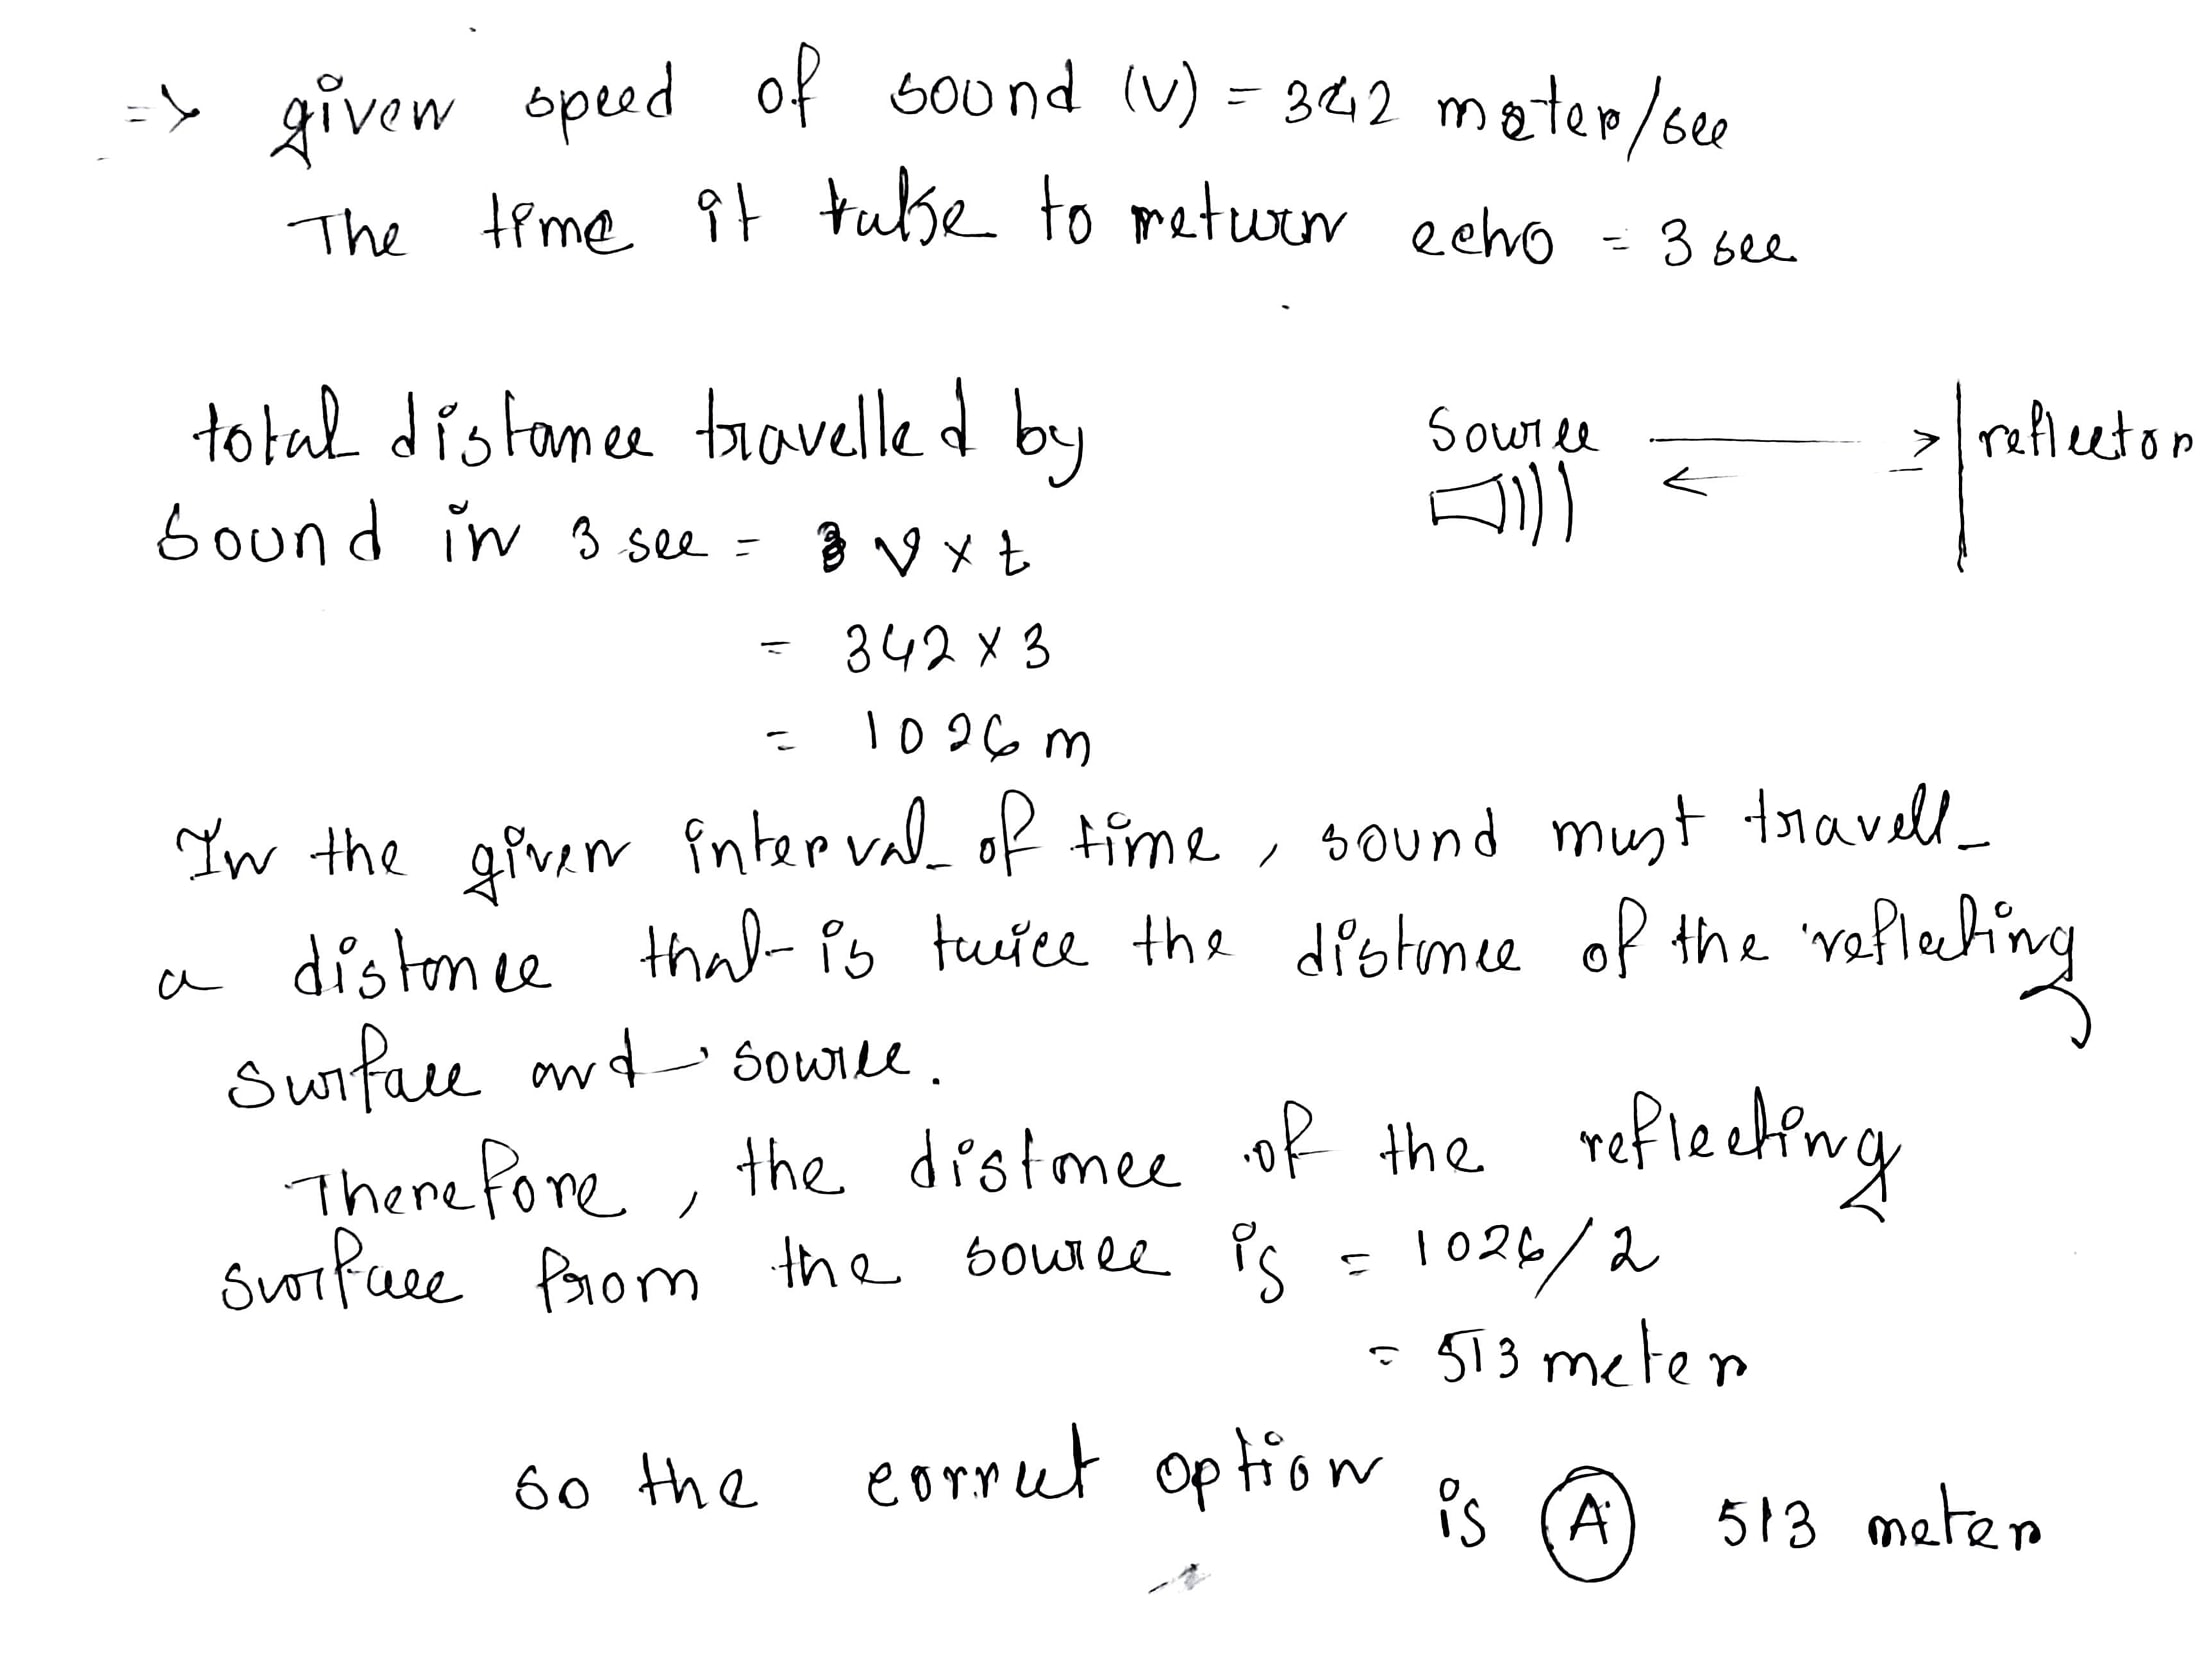 => given speed of sound (v) = 342 meter/sec
The time it take to return echo = 3 sec
total distance travelled by
sound in 3 sec = v x t
= 342 x 3
= 1026 m
source
reflector
In the given interval of time, sound must travell
a distance that is twice the distance of the reflecting
surface and source.
Therefore, the distance of the reflecting
surface from the source is = 1026/2
= 513 meter
so the correct option is A 513 meter